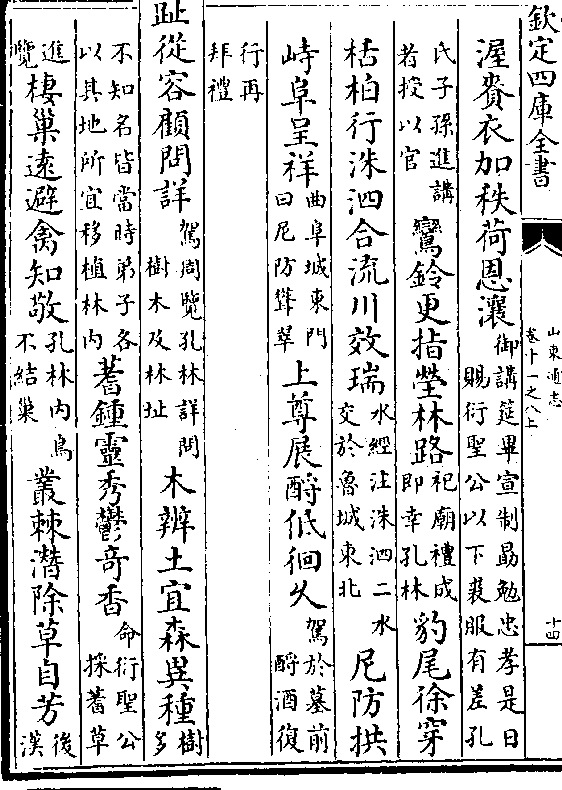 欽定四庫全書
山東通志
卷十一之八上
十四
渥賚衣加秩荷恩瀼御講筵畢宣制勗勉忠孝是日賜衍聖公以下裘服有差孔
氏子孫進講者授以官鸞鈴更指塋林路祀廟禮成即幸孔林豹尾徐穿
栝柏行洙泗合流川效瑞水經注洙泗二水交於魯城東北尼防拱
峙阜呈祥曲阜城東門曰尼防聳翠上尊展酹低徊久駕於墓前酹酒復
行再拜禮
趾從容顧問詳駕周覽孔林詳問樹木及林址木辨土宜森異種樹多
不知名皆當時弟子各以其地所宜移植林内蓍鍾靈秀鬱奇香命衍聖公採蓍草
進覽棲巢逺避禽知敬孔林内鳥不結巢叢棘潛除草自芳後漢